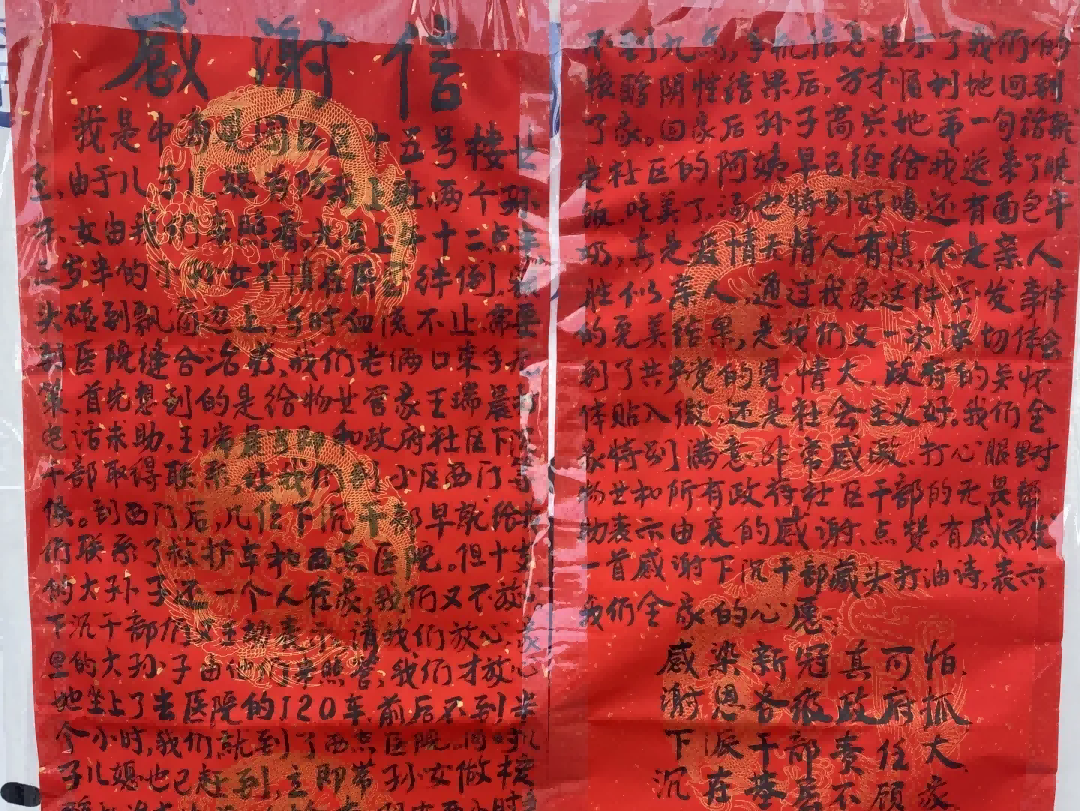 感谢信
我是中 十五号楼
由于儿子儿媳 上班,两个孙
女由我们来照看。 上午十二点
三岁半的 孙女不慎在 绊倒,
头碰到飘窗 上,当时血流不止,需要
到医院缝合治疗,我们老俩口束手无
策,首先想到的是给物业管家王瑞晨打
电话求助,王瑞晨 和政府社区下沉
干部取得联系,让我们到小区西门等
候。到西门后,几位下沉干部早就给我
们联系了救护车和西京医院。但十岁
的大孙子不 一个人在家,我们又不放心。
下沉干部们又主动表示,请我们放心,家
里的大孙子由他们来照管,我们才放心
地坐上了去医院的120车,前后不到半
个小时,我们就到了西京医院。同时儿
子儿媳也已赶到,立即带孙女做核
不到九点,手机信息显示了我们的
核酸阴性结果后,方才顺利地回到
了家。回家后孙子高兴地第一句话就
是社区的阿姨早已经给我送来了晚
饭,吃美了,汤也特别好喝,还有面包牛
奶,真是疫情无情人有情,不是亲人
胜似亲人,通过我家这件突发事件
的完美结果,是我们又一次深切体会
到了共产党的恩情大,政府的关怀
体贴入微,还是社会主义好。我们全
家特别满意,非常感激,打心眼里对
物业和所有政府社区干部的无畏帮
助表示由衷的感谢、点赞。有感而发
一首感谢下沉干部藏头打油诗,表示
我们全家的心愿:
感染新冠真可怕
谢恩各级政府孤
下派干部责任大
沉在基层 顾家